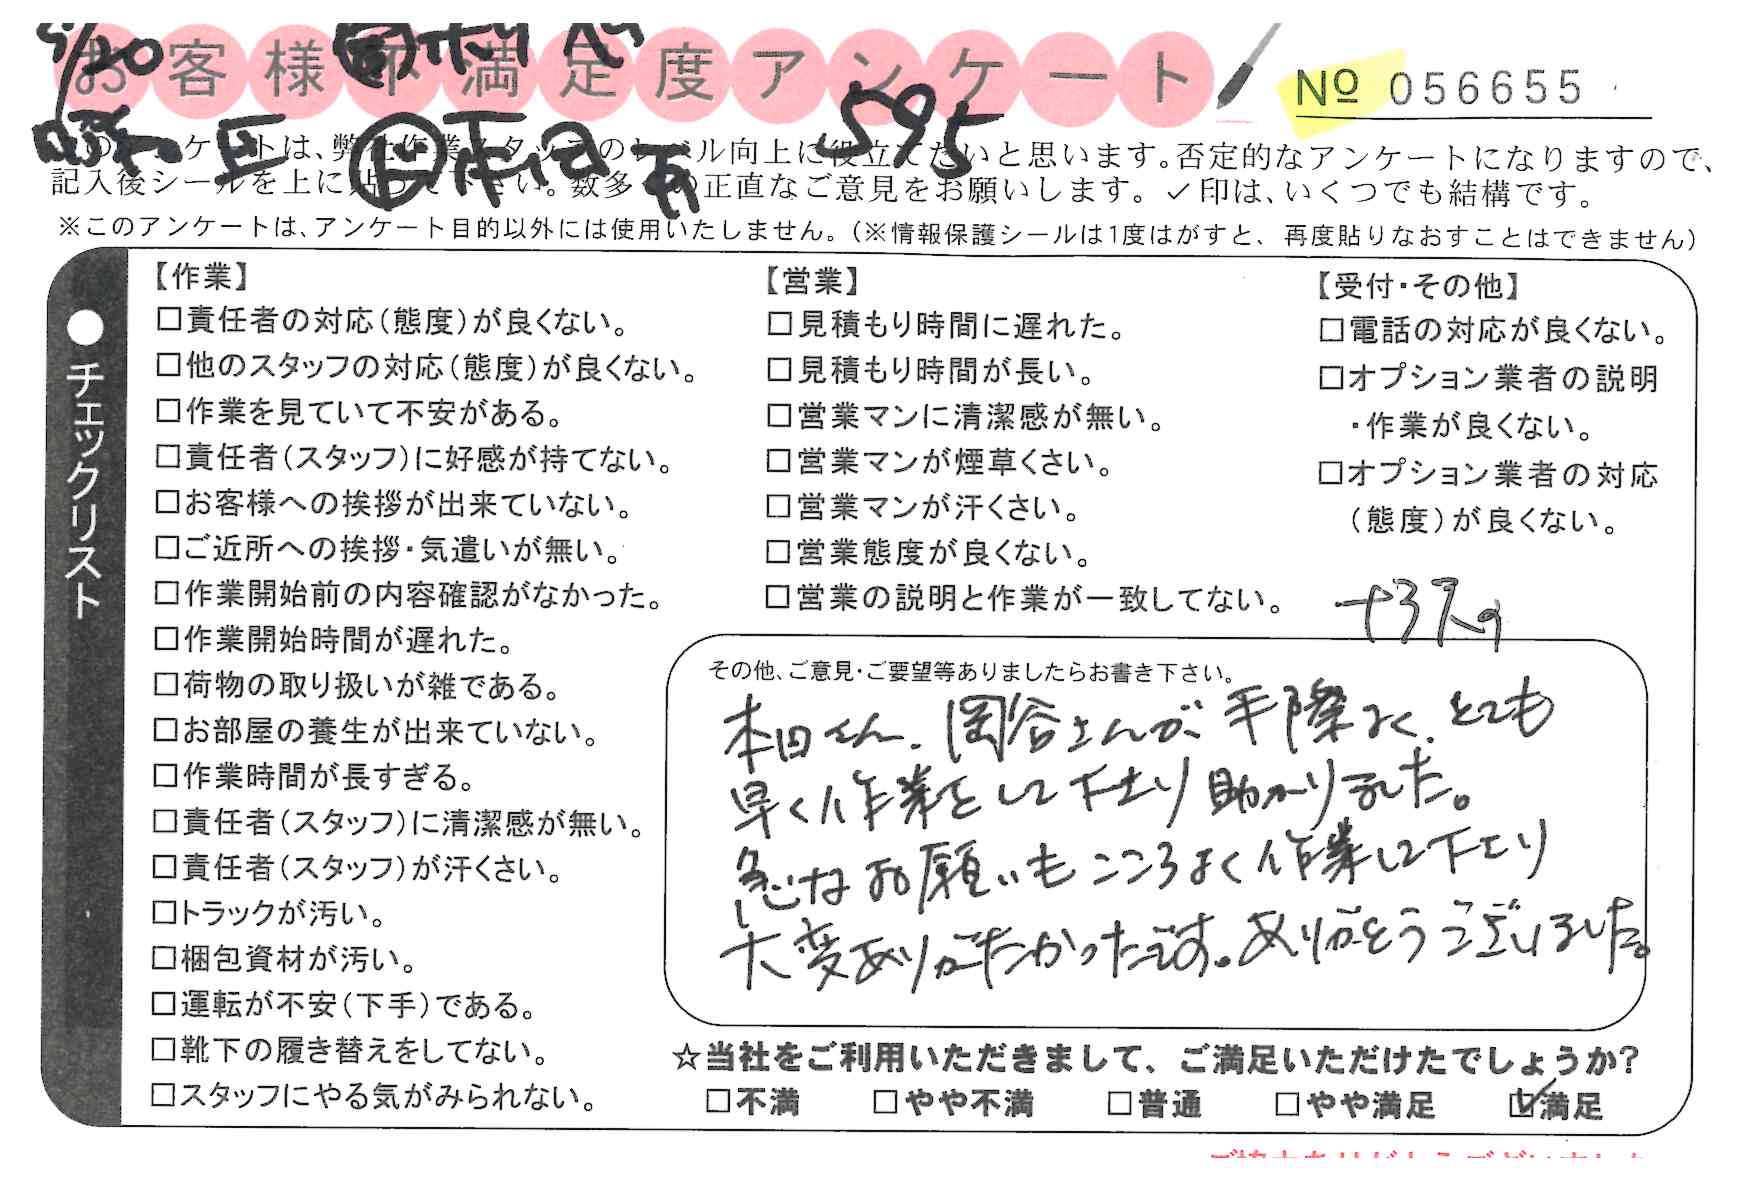 お客様不満足度アンケート
5/20
595
№ 056655
このアンケートは、弊社作業スタッフのレベル向上に役立てたいと思います。否定的なアンケートになりますので、
記入後シールを上に貼って下さい。数多くの正直なご意見をお願いします。✓印は、いくつでも結構です。
※このアンケートは、アンケート目的以外には使用いたしません。(※情報保護シールは1度はがすと、再度貼りなおすことはできません)
●チェックリスト
【作業】
□責任者の対応(態度)が良くない。
□他のスタッフの対応(態度)が良くない。
□作業を見ていて不安がある。
□責任者(スタッフ)に好感が持てない。
□お客様への挨拶が出来ていない。
□ご近所への挨拶・気遣いが無い。
□作業開始前の内容確認がなかった。
□作業開始時間が遅れた。
□荷物の取り扱いが雑である。
□お部屋の養生が出来ていない。
□作業時間が長すぎる。
□責任者(スタッフ)に清潔感が無い。
□責任者(スタッフ)が汗くさい。
□トラックが汚い。
□梱包資材が汚い。
□運転が不安(下手)である。
□靴下の履き替えをしてない。
□スタッフにやる気がみられない。
【営業】
□見積もり時間に遅れた。
□見積もり時間が長い。
□営業マンに清潔感が無い。
□営業マンが煙草くさい。
□営業マンが汗くさい。
□営業態度が良くない。
□営業の説明と作業が一致してない。
【受付・その他】
□電話の対応が良くない。
□オプション業者の説明
・作業が良くない。
□オプション業者の対応
(態度)が良くない。
その他、ご意見・ご要望等ありましたらお書き下さい。
本田さん、岡谷さんが手際よく、とても
早く作業をして下さり助かりました。
急なお願いもこころよく作業して下さり
大変ありがたかったです。ありがとうございました。
☆当社をご利用いただきまして、ご満足いただけたでしょうか?
□不満 □やや不満 □普通 □やや満足 ☑満足